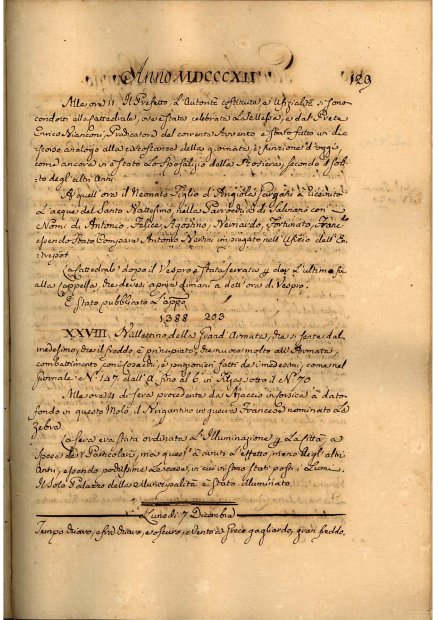 Anno MDCCCXII 129
Alle ore 11. Il Prefetto, l'Autorità costituita, e Uffizialità si sono
condotti alla Cattedrale, ove è stato celebrata la Messa, e dal Prete
Enrico Bianconi, Predicatore del corrente Avvento è stato fatto un di
scorso analogo alla circostanza della giornata, e funzione d'oggi,
come ancora vi è stato lo sposalizio della solito
to degl'altri Anni.
A quell'ora il Neonato Figlio d'Angiola è ricevuto
l'acque del Santo Battesimo nella Parrocchia di con
Nomi di Antonio, Felice, Agostino, Bernardo, Fortunato, Franc.co
essendo stato Compare Antonio impiegato nell'Ufizio dell'En
trepot.
La Cattedrale dopo il Vespro è stata serrata, e
alla Cappella, che deve aprirsi dimani a dell'ora di Vespro.
È stato pubblicato l'appo
1388 203
XXVIII Bullettino della Grand'Armata, che si sente dal
medesimo, che il freddo, è principiato, che nuoce molto all'Armata,
combattimenti coi Cosacchi, e prigionieri fatti da i medesimi, come nel
Giornale N.° 147 dall'A fino al 6 in Filza sotto il N.° 70
Alle ore 4 di sera procedente da Ajaccio in Corsica à dato
fondo in questo Molo, il Brigantino in guerra Francese nominato La
Zebra
La sera era stata ordinata l'Illuminazione La Città, a
spese de i Particolari, ma quest' à avuto l'effetto, meno degl'altri
Anni, essendo pochissime le case, in cui vi sono stati posti i Lumi.
Il solo Palazzo della Municipalità è stato illuminato.
Lunedì 7 Dicembre
Tempo chiaro, e fra chiaro, e oscuro, e vento a Greco gagliardo, gran freddo.